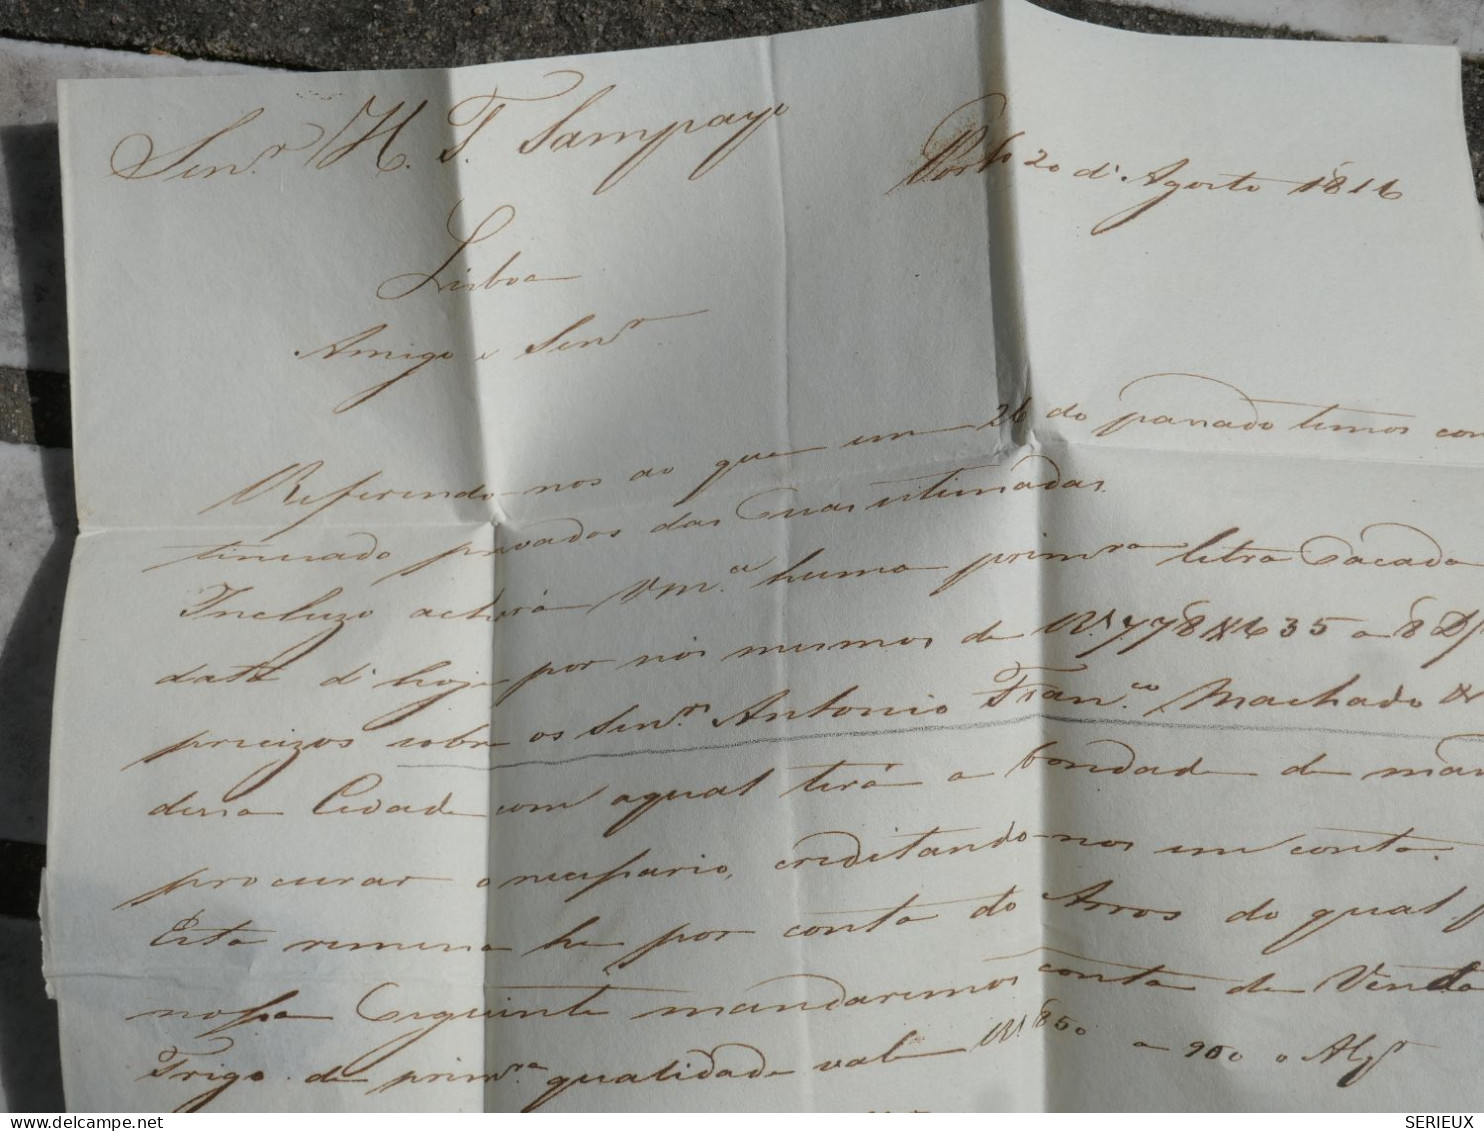 Senr. H. T. Sampayo
Porto 20 d'Agosto 1816
Lisboa
Amigo e Senr
Referindo-nos ao que em 26 do passado temos con
tinuado privados das Suas estimadas.
Incluzo achará Vm.ce huma primra letra Sacada
data d'hoje por nós mesmos de Rs. 778$635 a 8 D/
precizos sobre os Senrs. Antonio Franco. Machado &
dessa Cidade com aqual terá a bondade de man
procurar onecessario, creditando-nos em conta.
Esta remessa he por conta do Arros do qual p
nossa Seguinte mandaremos conta de Venda
Trigo de primra. qualidade vale Rs 850 a 900 o Alqr
delcampe.net
SERIEUX